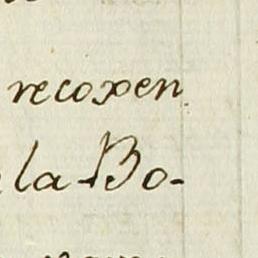 recoxen
la Bo-